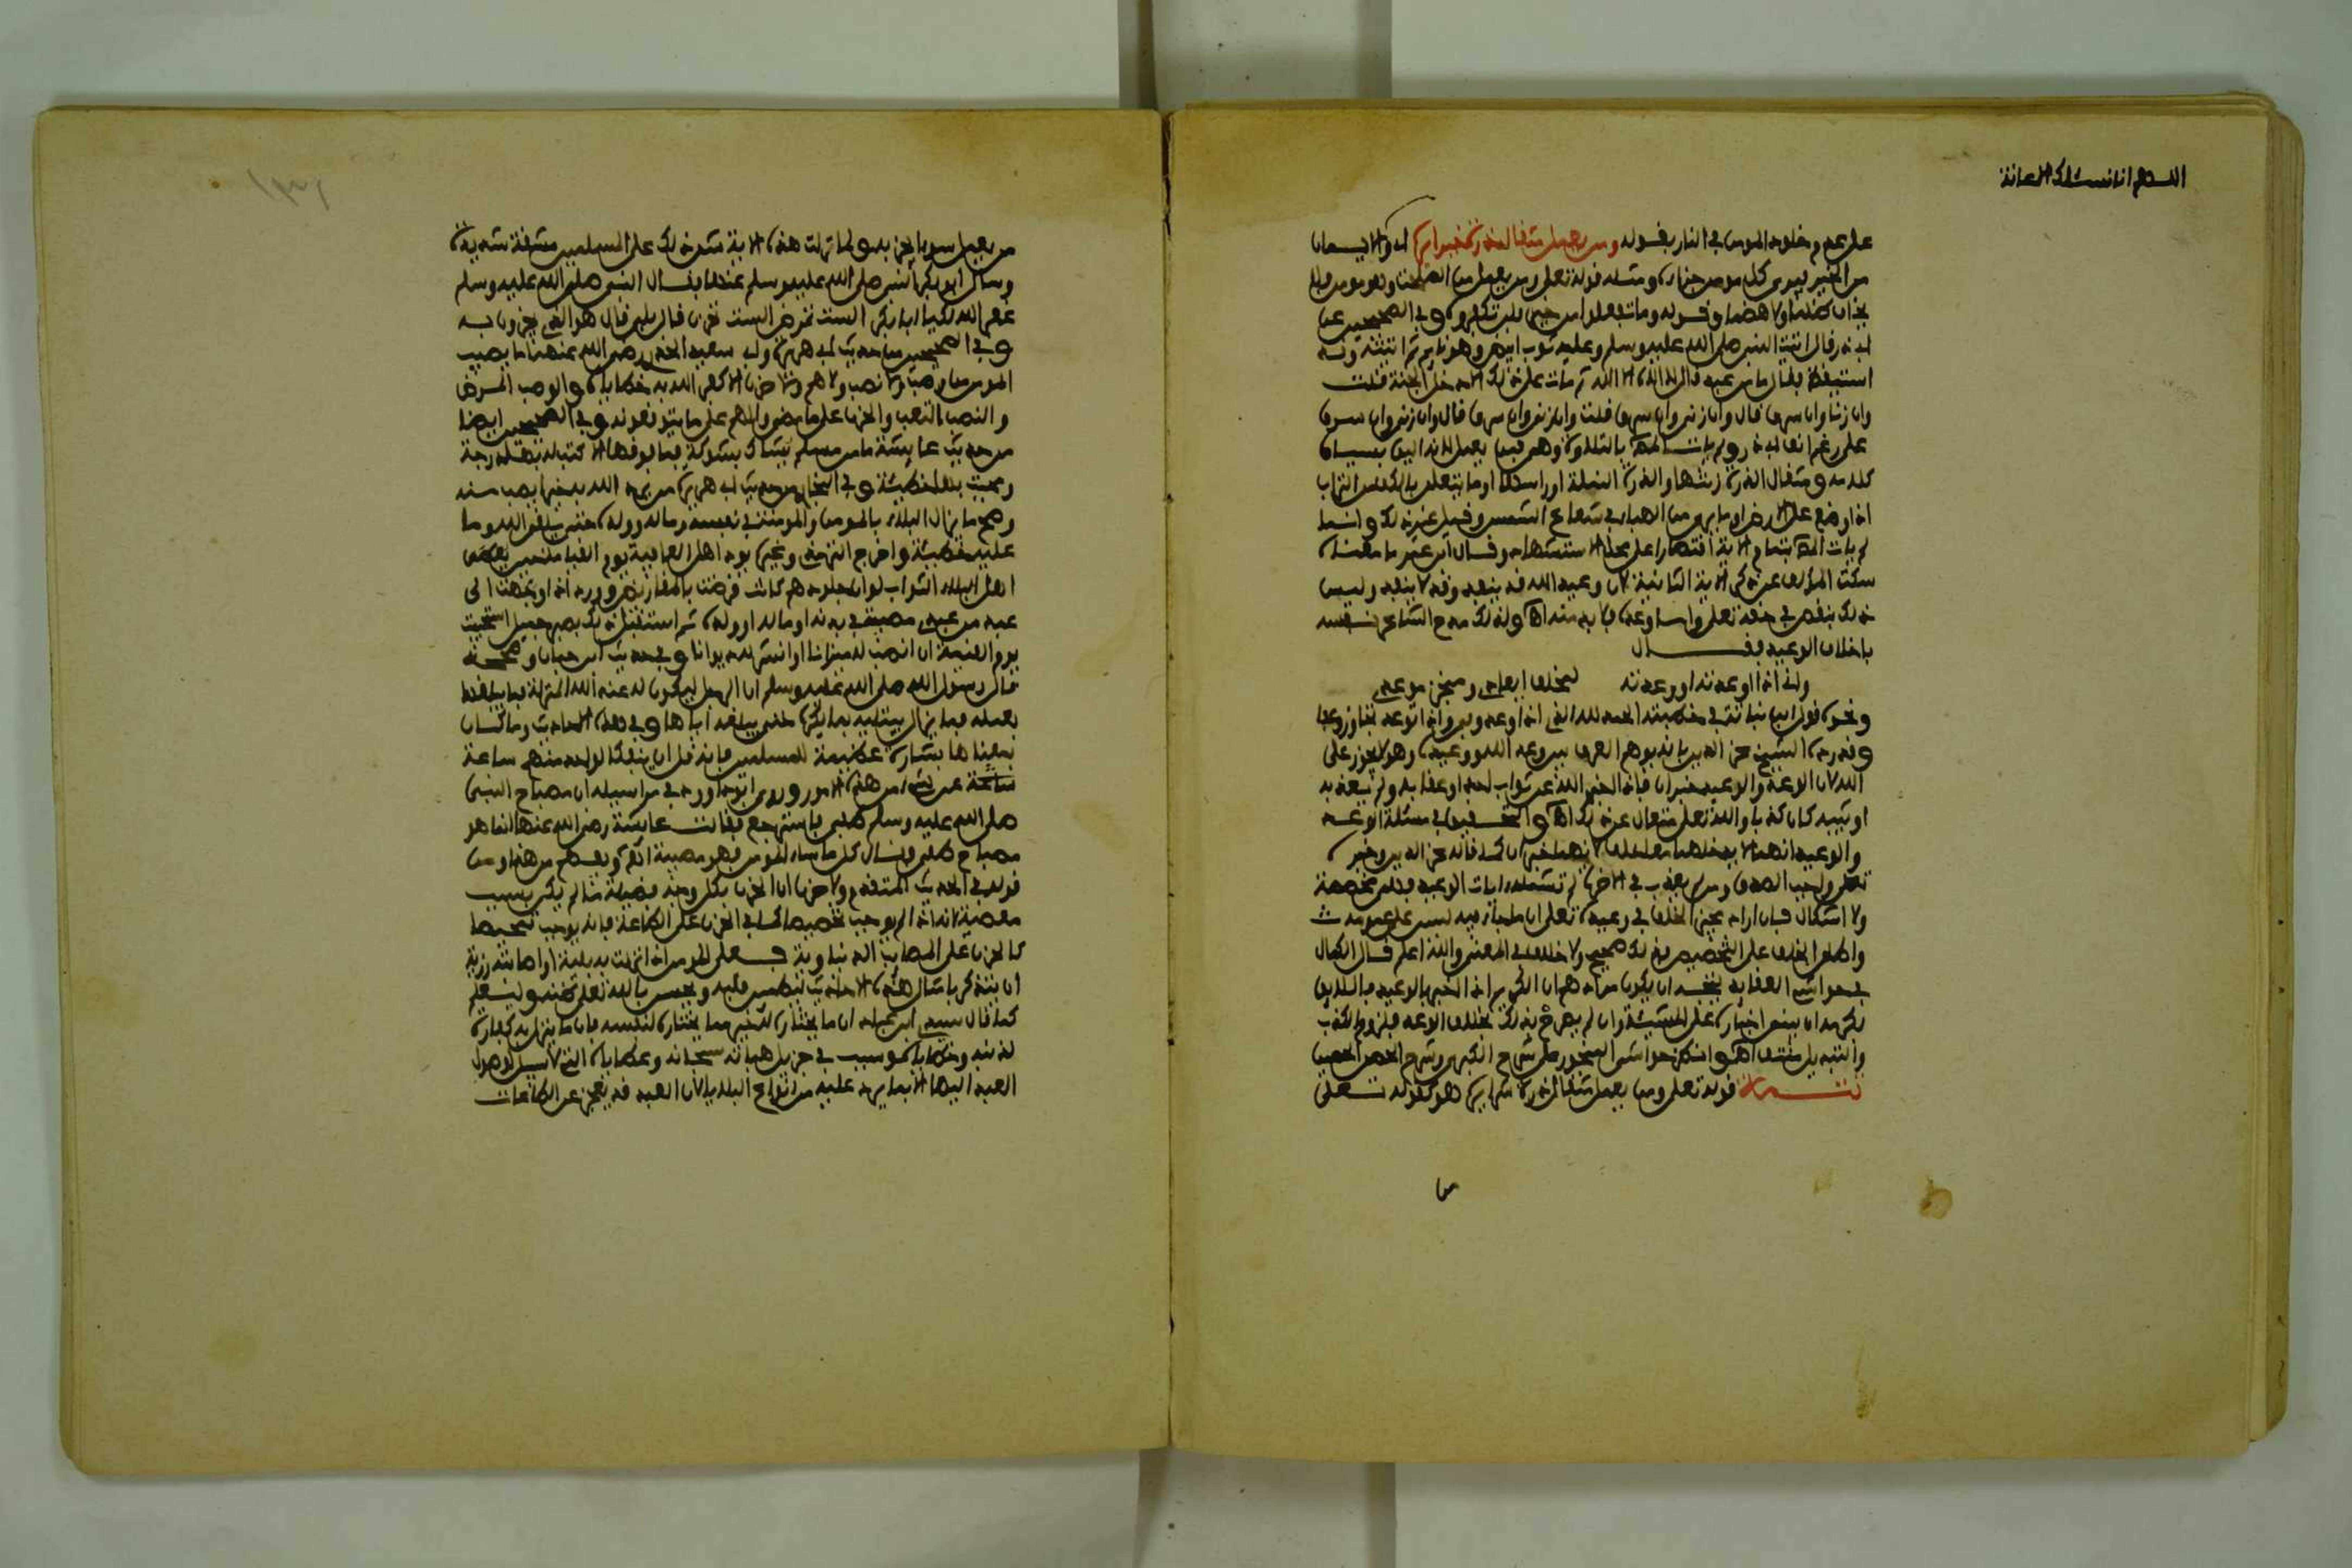 اللهم انا نسئلك الاعانة
على عدم خلود المومن في النار بقوله ومن يعمل مثقال ذرة خيرا يره اذ والايمان
من الخير فيرى كل مومن جزاءه ومثله قوله تعلى ومن يعمل من الصلحت وهو مومن فلا
يخاف ظلما ولا هضما وقوله وما تفعلوا من خير فلن تكفروه وفي الصحيحين عن
ابي ذر قال اتيت النبي صلى الله عليه وسلم وعليه ثوب ابيض وهو نايم ثم اتيته وقد
استيقظ فقال ما من عبد قال لا اله الا الله ثم مات على ذلك الا دخل الجنة قلت
وان زنا وان سرق قال وان زنى وان سرق قلت وان زنى وان سرق قال وان زنى وان سرق
على رغم انف ابي ذر ولم يات بالتلاوة وهي فمن يعمل لانه اليق بسياق
كلامه ومثقال الذرة زنتها والذرة النملة او راسها او ما يتعلق بالكف من التراب
اذا وضع على الارض او ما يرى من الهباء في شعاع الشمس وقيل غير ذلك وانما
لم يات بتمام الاية اقتصارا على محل الاستشهاد وقال ابن عمر ما معناه
سكت المؤلف عن ذكر الاية الثانية لان وعيد الله قد ينفذه وقد لا ينفذه وليس
ذلك بنقص في حقه تعلى واما وعده فلا بد منه اه ولذلك مدح الشاعر نفسه
باخلاف الوعيد فقال
واني اذا اوعدته او وعدته لمخلف ايعادي ومنجز موعدي
ونحوه قول ابن نباتة في خطبته الحمد لله الذي اذا وعد وفى واذا توعد تجاوز وعفا
وقد رده الشيخ عز الدين بانه يوهم الفرق بين وعد الله ووعيده وهو لا يجوز على
الله لان الوعد والوعيد خبران فاذا اخبر الله عن ثواب احد او عقابه ولم يعذبه
او يثيبه كان كذبا والله تعلى متعال عن ذلك اه والتحقيق في مسئلة الوعد
والوعيد انهما لا يدخلهما خلف لانهما خبران كما قاله عز الدين وخبره
تعلى واجب الصدق ومن لم يعذب في الاخرة لم تشمله ايات الوعيد فهي مخصصة
ولا اشكال فان اراد بجيز الخلف في وعيده تعلى ان ما جاء فيه ليس على عمومه
واطلق الخلف على التخصيص فذلك صحيح ولا خلاف في المعنى والله اعلم قال الكمال
في حواشي العقايد يتجه ان يكون مرادهم ان الكريم اذا اخبر بالوعيد فاللايق
بكرمه ان يبني اخباره على المشيئة وان لم يصرح بذلك بخلاف الوعد فلزوم الكذب
والتبديل منتف اه وانظر حواشي المنجور على شرح الكبرى وشرح الحصن الحصين
تتمة قوله تعلى ومن يعمل مثقال ذرة شرا يره هو كقوله تعلى
من
من يعمل سوءا يجز به ولما نزلت هذه الاية شق ذلك على المسلمين مشقة شديدة
وسال ابو بكر النبي صلى الله عليه وسلم عنها فقال النبي صلى الله عليه وسلم
غفر الله لك يا ابا بكر الست تمرض الست تحزن قال بلى قال هو الذي تجزون به
وفي الصحيحين من حديث ابي هريرة وابي سعيد الخدري رضي الله عنهما ما يصيب
المومن من وصب ولا نصب ولا هم ولا حزن الا كفر الله به خطاياه والوصب المرض
والنصب التعب والحزن على ما مضى والهم على ما يتوقعونه وفي الصحيحين ايضا
من حديث عايشة ما من مسلم يشاك بشوكة فما فوقها الا كتب له بها درجة
ومحيت بها خطيئة وفي البخاري من حديث ابي هريرة من يرد الله به خيرا يصب منه
وصح ما يزال البلاء بالمومن والمومنة في نفسه وماله وولده حتى يلقى الله وما
عليه خطيئة واخرج الترمذي وغيره يود اهل العافية يوم القيامة حين يعطى
اهل البلاء الثواب لو ان جلودهم كانت قرضت بالمقاريض وورد اذا وجهت الى
عبد من عبيدي مصيبة في بدنه او ماله او ولده ثم استقبل ذلك بصبر جميل استحييت
يوم القيمة ان انصب له ميزانا او انشر له ديوانا وفي حديث ابن حبان وصححه
قال رسول الله صلى الله عليه وسلم ان الرجل ليكون له عند الله المنزلة فما يبلغها
بعمله فما يزال يبتليه بما يكره حتى يبلغه اياها وفي هذه الاحاديث وما كان
بمعناها بشارة عظيمة للمسلمين فانه قل ان ينفك الواحد منهم ساعة
عن شيء من هذه الامور وروى ابو داود في مراسيله ان مصباح النبي
صلى الله عليه وسلم طفي فاسترجع فقالت عايشة رضي الله عنها انما هو
مصباح طفي فقال كل ما ساء المومن فهو مصيبة انظره ويفهم من هذا ومن
قوله في الحديث المتقدم ولا حزن ان الحزن بكل وجه فضيلة ما لم يكن بسبب
معصية لانه اذا لم يوجب تخصيصا كما في الحزن على الطاعة فانه يوجب تمحيصا
كالحزن على المصايب الدنياوية فعلى المومن اذا نزلت به بلية او اصابته رزية
ان يتذكر بامثال هذه الاحاديث ليطمئن قلبه ويحسن بالله تعلى ظنه وليعلم
كما قال سيدي ابن عباد ان ما يختاره له خير مما يختاره لنفسه فان ما ينزل به كفارة
لذنبه وخطاياه وسبب في جزيل هباته سبحانه وعطاياه التي لا سبيل لوصول
العبد اليها الا بما يرد عليه من انواع البلايا لان العبد قد يعجز عن الطاعات